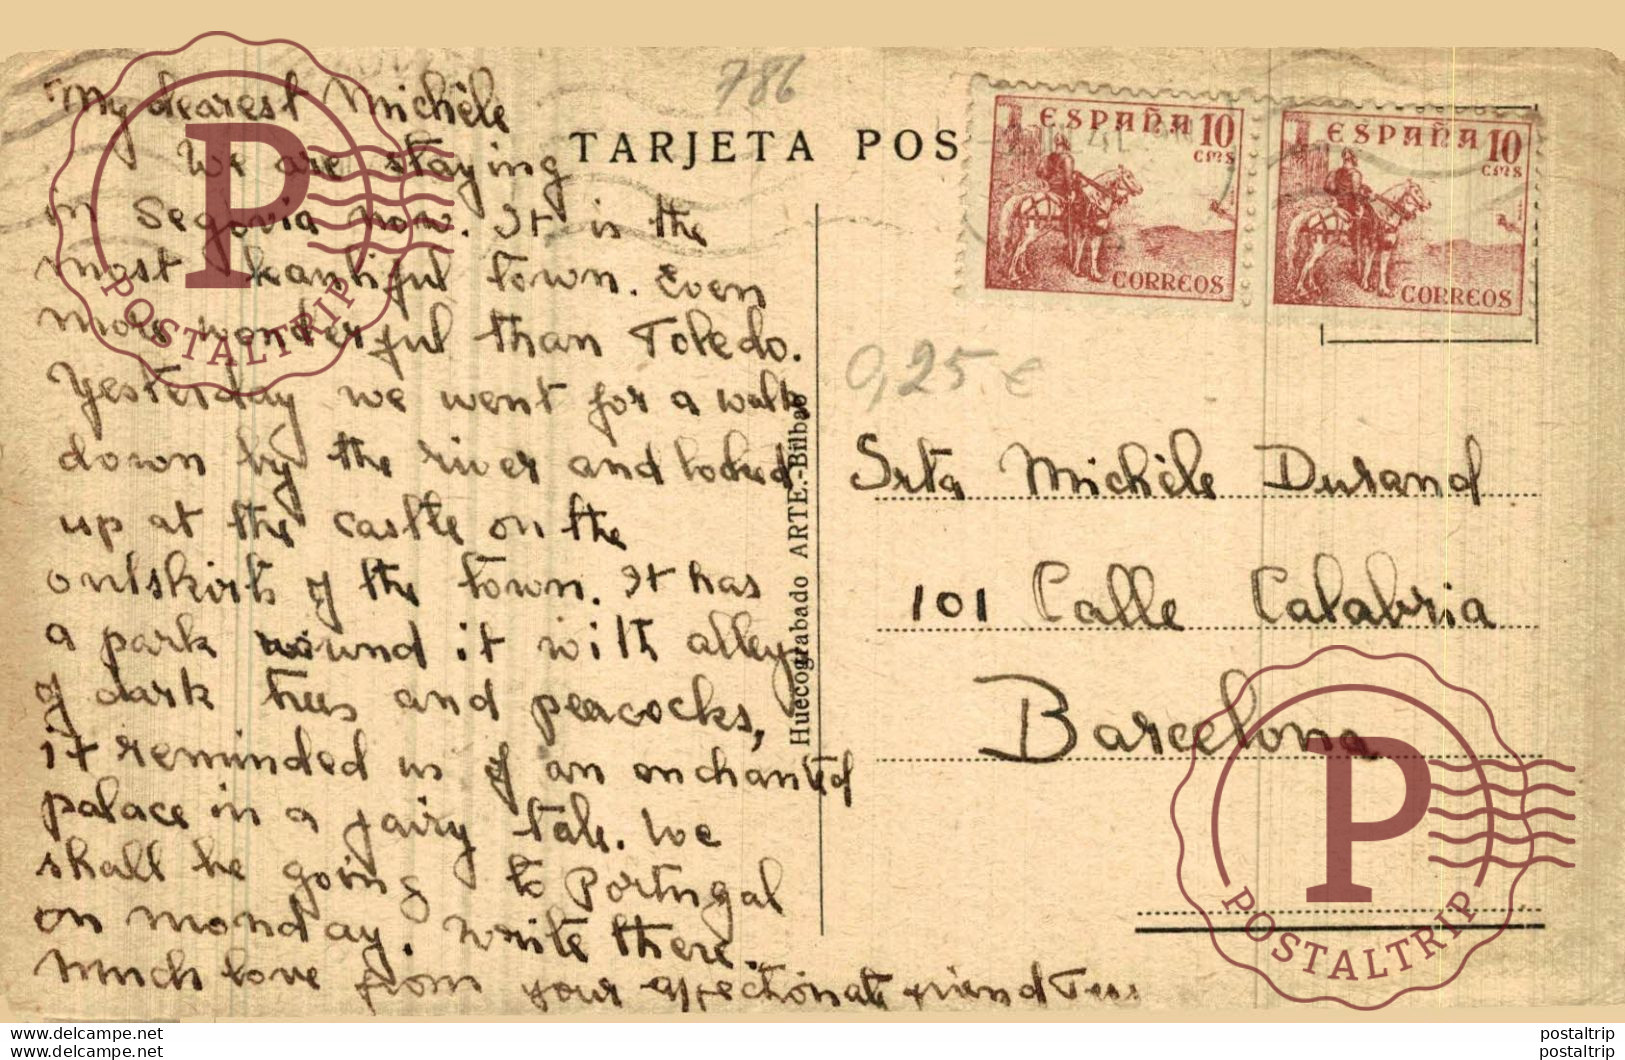 My dearest Michèle
We are staying
in Segovia now. It is the
most beautiful town. Even
more wonderful than Toledo.
Yesterday we went for a walk
down by the river and looked
up at the castle on the
outskirts of the town. It has
a park round it with alleys
of dark trees and peacocks,
it reminded us of an enchanted
palace in a fairy tale. We
shall be going to Portugal
on Monday. Write there.
Much love from your affectionate friend Tess
786
TARJETA POS
ESPAÑA 10 cms
CORREOS
ESPAÑA 10 cms
CORREOS
0,25 €
Huecograbado ARTE.-Bilbao
Srta Michèle Durand
101 Calle Calabria
Barcelona
P
POSTALTRIP
P
POSTALTRIP
www.delcampe.net
www.delcampe.net
postaltrip
postaltrip